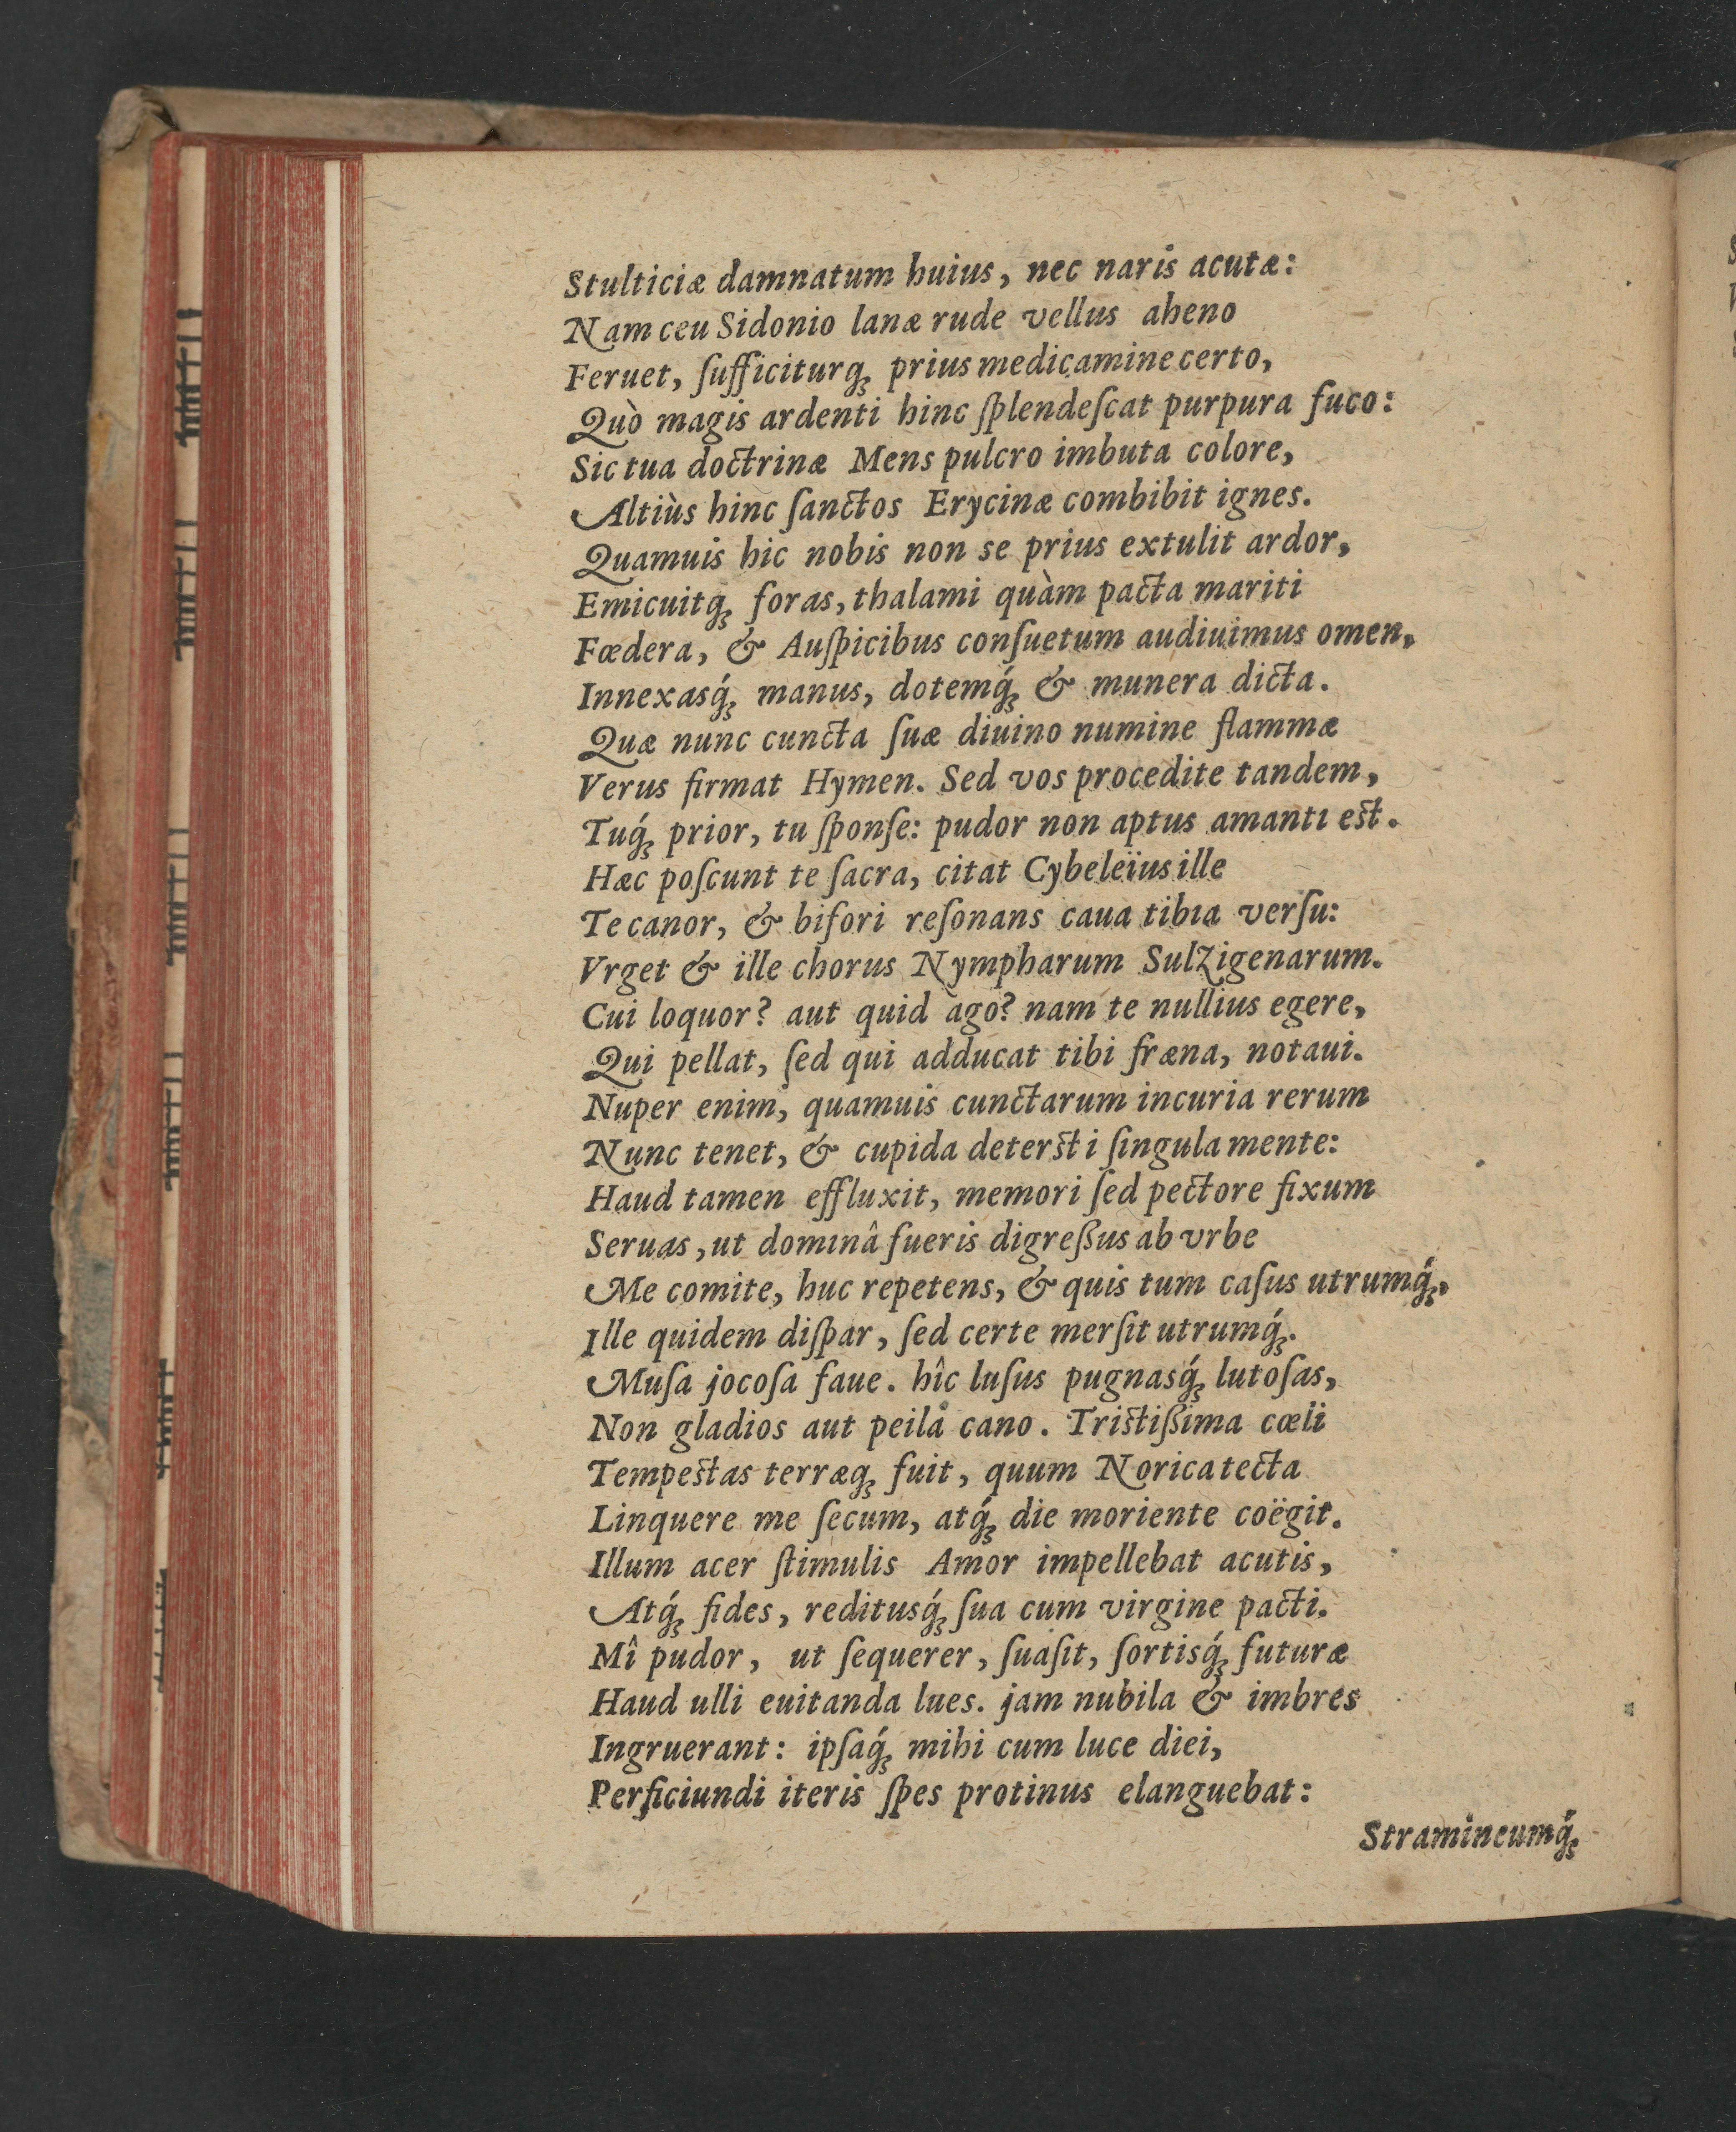 Stulticiæ damnatum huius, nec naris acutæ:
Nam ceu Sidonio lanæ rude vellus aheno
Feruet, ſufficiturq́ꝫ prius medicamine certo,
Quò magis ardenti hinc ſplendeſcat purpura fuco:
Sic tua doctrinæ Mens pulcro imbuta colore,
Altiùs hinc ſanctos Erycinæ combibit ignes.
Quamuis hic nobis non se prius extulit ardor,
Emicuitqꝫ foras, thalami quàm pacta mariti
Fœdera, & Auſpicibus conſuetum audiuimus omen,
Innexasq́ꝫ manus, dotemq́ꝫ & munera dicta.
Quæ nunc cuncta ſuæ diuino numine flammæ
Verus firmat Hymen. Sed vos procedite tandem,
Tuq́ꝫ prior, tu ſponſe: pudor non aptus amanti eſt.
Hæc poſcunt te ſacra, citat Cybeleïus ille
Te canor, & bifori reſonans caua tibia verſu:
Vrget & ille chorus Nympharum Sulzigenarum.
Cui loquor? aut quid ago? nam te nullius egere,
Qui pellat, ſed qui adducat tibi fræna, notaui.
Nuper enim, quamuis cunctarum incuria rerum
Nunc tenet, & cupida deterſti ſingula mente:
Haud tamen effluxit, memori ſed pectore fixum
Seruas, ut dominâ fueris digreßus ab vrbe
Me comite, huc repetens, & quis tum caſus utrumq́ꝫ,
Ille quidem diſpar, ſed certe merſit utrumq́ꝫ.
Muſa jocoſa faue. hîc luſus pugnasq́ꝫ lutoſas,
Non gladios aut peila cano. Triſtißima cœli
Tempeſtas terræqꝫ fuit, quum Norica tecta
Linquere me ſecum, atq́ꝫ die moriente coëgit.
Illum acer ſtimulis Amor impellebat acutis,
Atq́ꝫ fides, reditusq́ꝫ ſua cum virgine pacti.
Mî pudor, ut ſequerer, ſuaſit, ſortisq́ꝫ futuræ
Haud ulli euitanda lues. jam nubila & imbres
Ingruerant: ipſaq́ꝫ mihi cum luce diei,
Perficiundi iteris ſpes protinus elanguebat:
Stramineumq́ꝫ